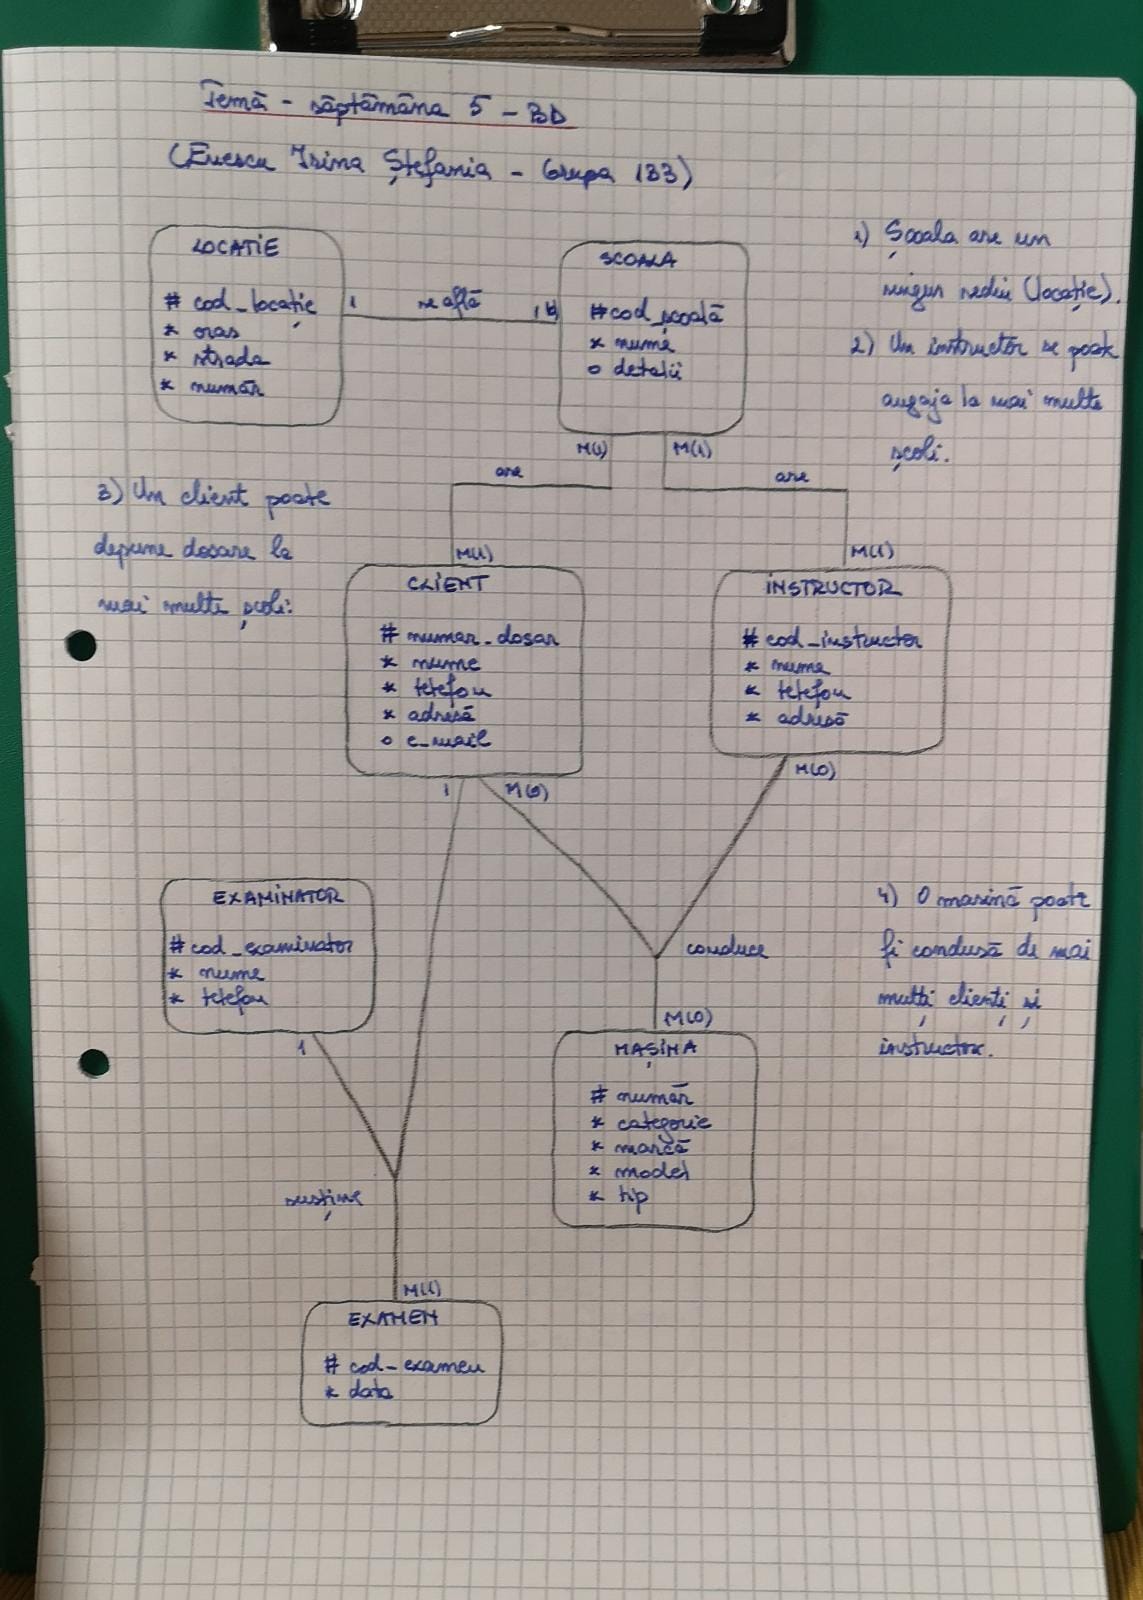 Temă - săptămâna 5 - BD
(Enescu Irina Ștefania - Grupa 133)
LOCATIE
# cod_locație
* oras
* strada
* număr
1 se află
SCOALA
#cod_școală
* nume
o detalii
1) Școala are un
singur sediu (locație).
2) Un instructor se poate
angaja la mai multe
școli.
M(1) M(1)
are are
3) Un client poate
depune dosare la
mai multe școli.
M(1) M(1)
CLIENT
# numar_dosar
* nume
* telefon
* adresă
o e_mail
INSTRUCTOR
# cod_instructor
* nume
* telefon
* adresă
1 M(0) M(0)
EXAMINATOR
# cod_examinator
* nume
* telefon
1
conduce
4) O masină poate
fi condusă de mai
multi clienți și
instructor.
M(0)
MAȘINA
# număr
* categorie
* marcă
* model
* tip
susține
M(1)
EXAMEN
# cod_examen
* data